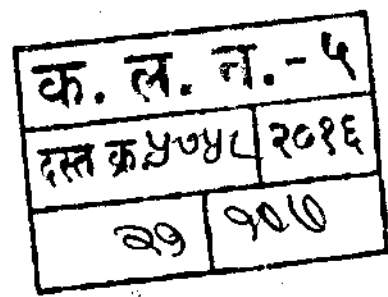 क. ल. न. - ५
दस्त क्र ५७५८ २०१६
२१ १०७